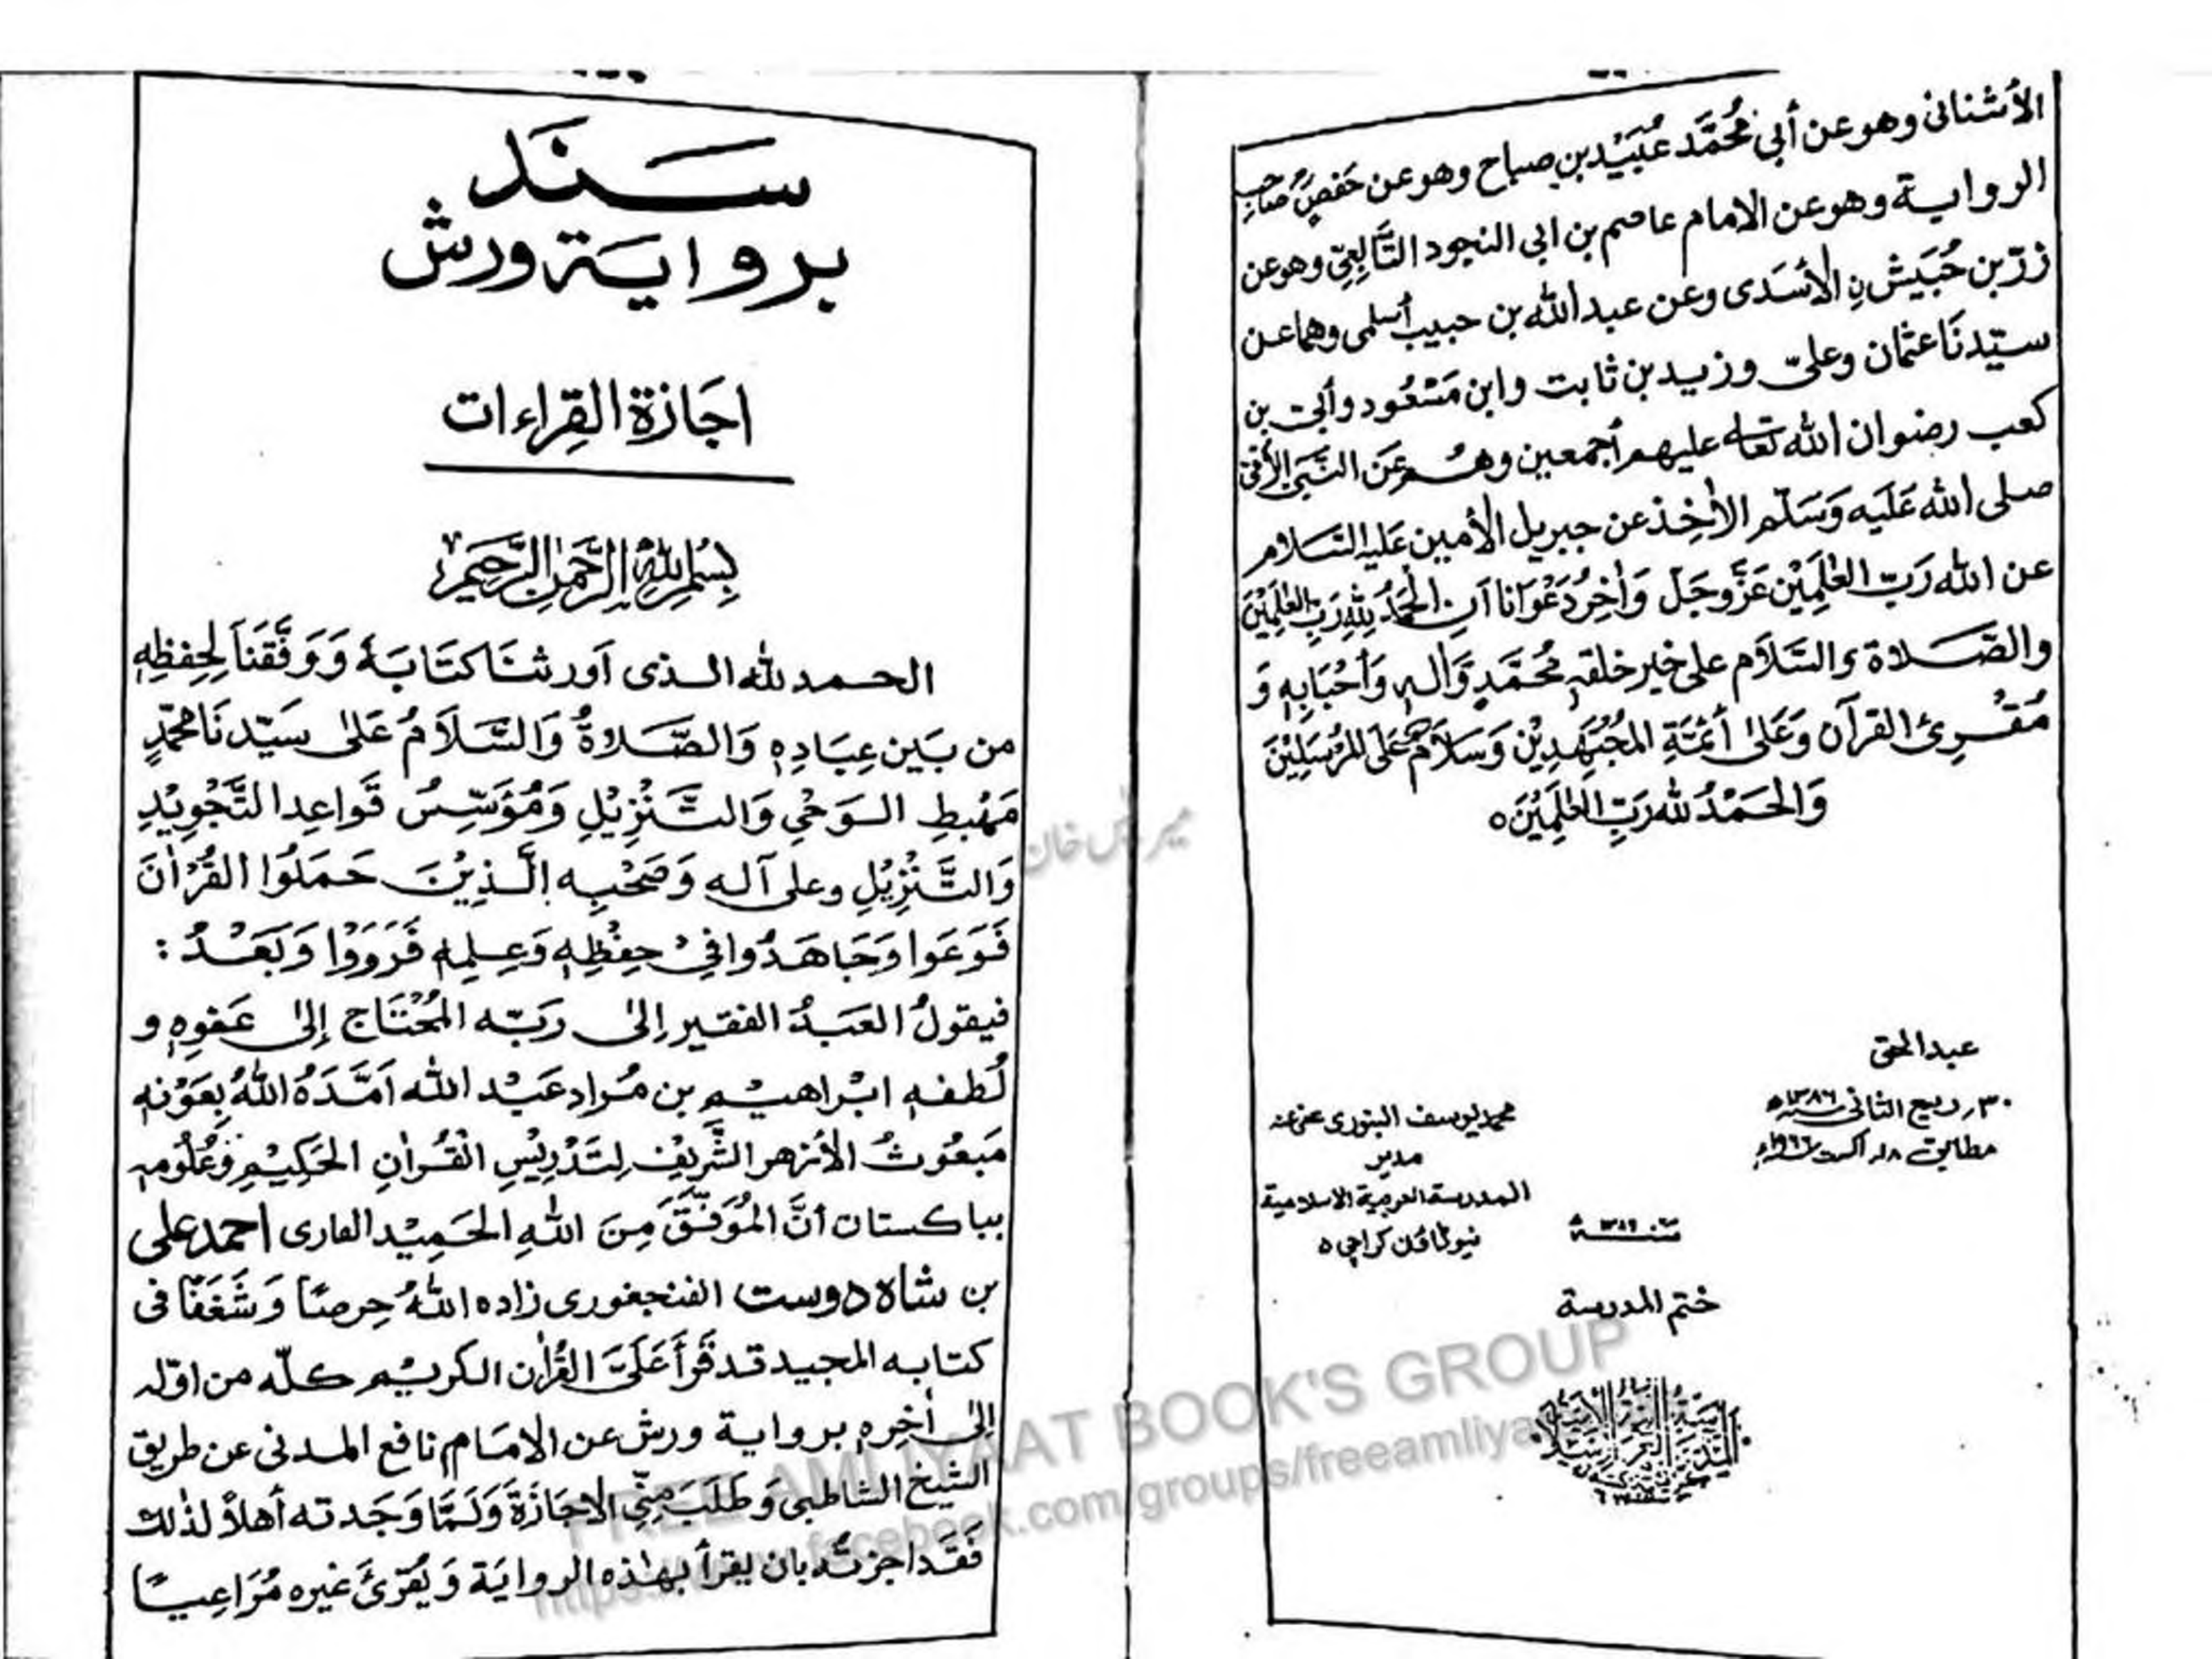 الأشنانی وهو عن أبي مُحَمَّد عُبَيْد بن صباح وهو عن حَفصٍ صَاحِبِ
الرواية وهو عن الامام عاصم بن ابی النجود التَّابِعِيّ وهو عن
زرّ بن حُبَيْش نِ الأسَدی وعن عبد الله بن حبيب أسلمی وهما عن
سيّدنَا عثمان وعلیّ وزيد بن ثابت وابن مَسْعُود وأبی بن
كعب رضوان الله تعالى عليهم أجمعين وهُم عَن النَّبَیِّ الأمّی
صلى الله عَلَيه وَسَلّم الآخِذ عن جبريل الأمين عَليه السَّلام
عن الله رَبّ العٰلَمِيْن عَزَّ وجَلّ وَاٰخِرُ دَعْوَانا اَنِ الحَمْدُ لِلّٰهِ رَبِّ العٰلَمِيْنَ
والصَّلاة والسَّلاَم علی خير خلقهٖ مُحَمَّدٍ وَّاٰلهٖ وَأحْبَابِهٖ وَ
مُقْرِئ القرآن وَعَلیٰ أئمَّةِ المُجْتَهِدِيْن وَسَلاَمٌ عَلَی المُرْسَلِيْنَ
وَالحَمْدُ لله رَبِّ العٰلَمِيْنَ ه
عبد الحق
٣٠ ربيع الثانی سنه ١٣٨٦ھ
مطابق ١٨ اگست سنه ١٩٦٦ء
محمد يوسف البنوری عفی عنه
مدير
المدرسة العربية الاسلامية
نیو ٹاؤن کراچی ٥
سنة ١٣٨٦
ختم المدرسة
سَنَد
برواية ورش
اجَازة القِراءات
بِسْمِ اللهِ الرَّحْمٰنِ الرَّحِيْمِ
الحمد لله الذی اَورثنَا كتَابَهُ وَوَفَّقنَا لِحِفظِهٖ
من بَين عِبَادِهٖ وَالصَّلاةُ وَالسَّلاَمُ عَلیٰ سَيّدنَا محمّدٍ
مَهْبطِ الوَحْیِ وَالتَّنْزِيْلِ وَمُؤَسِّسُ قَواعِدِ التَّجْوِيْدِ
وَالتَّنْزِيْلِ وعلی آله وَصَحْبِهٖ الَّذِيْنَ حَمَلُوا القُرْاٰنَ
فَوَعَوا وَجَاهَدُوا فِیْ حِفْظِهٖ وَعِلمِهٖ فَرَوَوْا وَبَعْدُ :
فيقولُ العَبدُ الفقير إلیٰ رَبّه المُحْتَاج إلیٰ عَفوِهٖ و
لُطفهٖ ابْراهيْم بن مُراد عَبْد الله اَمَّدَهُ اللهُ بِعَوْنهٖ
مَبعُوثُ الأزهر الشَّرِيْف لِتَدْرِيْسِ القُراٰنِ الحَكِيْمِ وَعُلُومهٖ
بباكستان أنَّ المُوَفَّقَ مِنَ اللهِ الحَمِيْد القاری احمد علی
بن شاه دوست الفنجفوری زاده اللهُ حِرصًا وَشَغَفًا فی
كتابه المجيد قد قَرأ عَلَیَّ القُراٰن الكريْم كلّه من اوّله
إلیٰ اٰخِرِهٖ برواية ورش عن الامَام نافع المدنی عن طريق
الشيخ الشاطبی وَطَلبَ مِنّی الاجَازَةَ وَلَمَّا وَجَدته أهلاً لذٰلك
فَقَد اجزتُه بان يقرأ بهٰذه الروايَة وَيُقرئَ غيره مُرَاعِيًا
FREE AMLIYAAT BOOK'S GROUP
https://www.facebook.com/groups/freeamliya